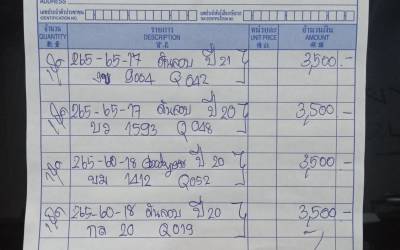 ADDRESS
เลขประจำตัวประชาชน
IDENTIFICATION NO.
จำนวน รายการ หน่วยละ จำนวนเงิน
QUANTITY DESCRIPTION UNIT PRICE AMOUNT
265-65-17 ดันลอป ปี 21 3,500.-
9004 Q042
265-65-17 ดันลอป ปี 20 3,500.-
1593 Q048
265-60-18 Goodyear ปี 20 3,500-
1412 Q052
265-60-18 ดันลอป ปี 20 3,500-
กล 20 Q019